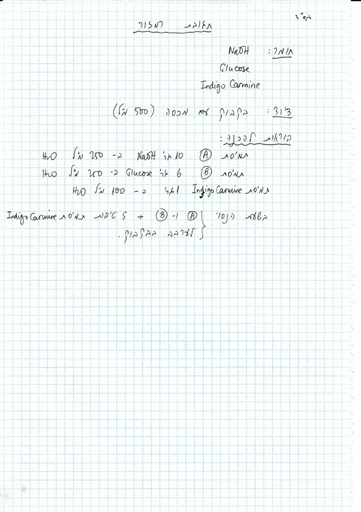 בס"ד
תגובת רמזור
חומר: NaOH
Glucose
Indigo Carmine
ציוד: בקבוק עם מכסה (500 מ"ל)
הוראות להכנה:
תמיסת Ⓐ 10 גר' NaOH ב- 250 מ"ל H₂O
תמיסת Ⓑ 6 גר' Glucose ב- 250 מ"ל H₂O
תמיסת Indigo Carmine 1 גר' ב- 100 מ"ל H₂O
בשעת הנסוי Ⓐ ו- Ⓑ + 5 טיפות תמיסת Indigo Carmine
לערבב בבקבוק.